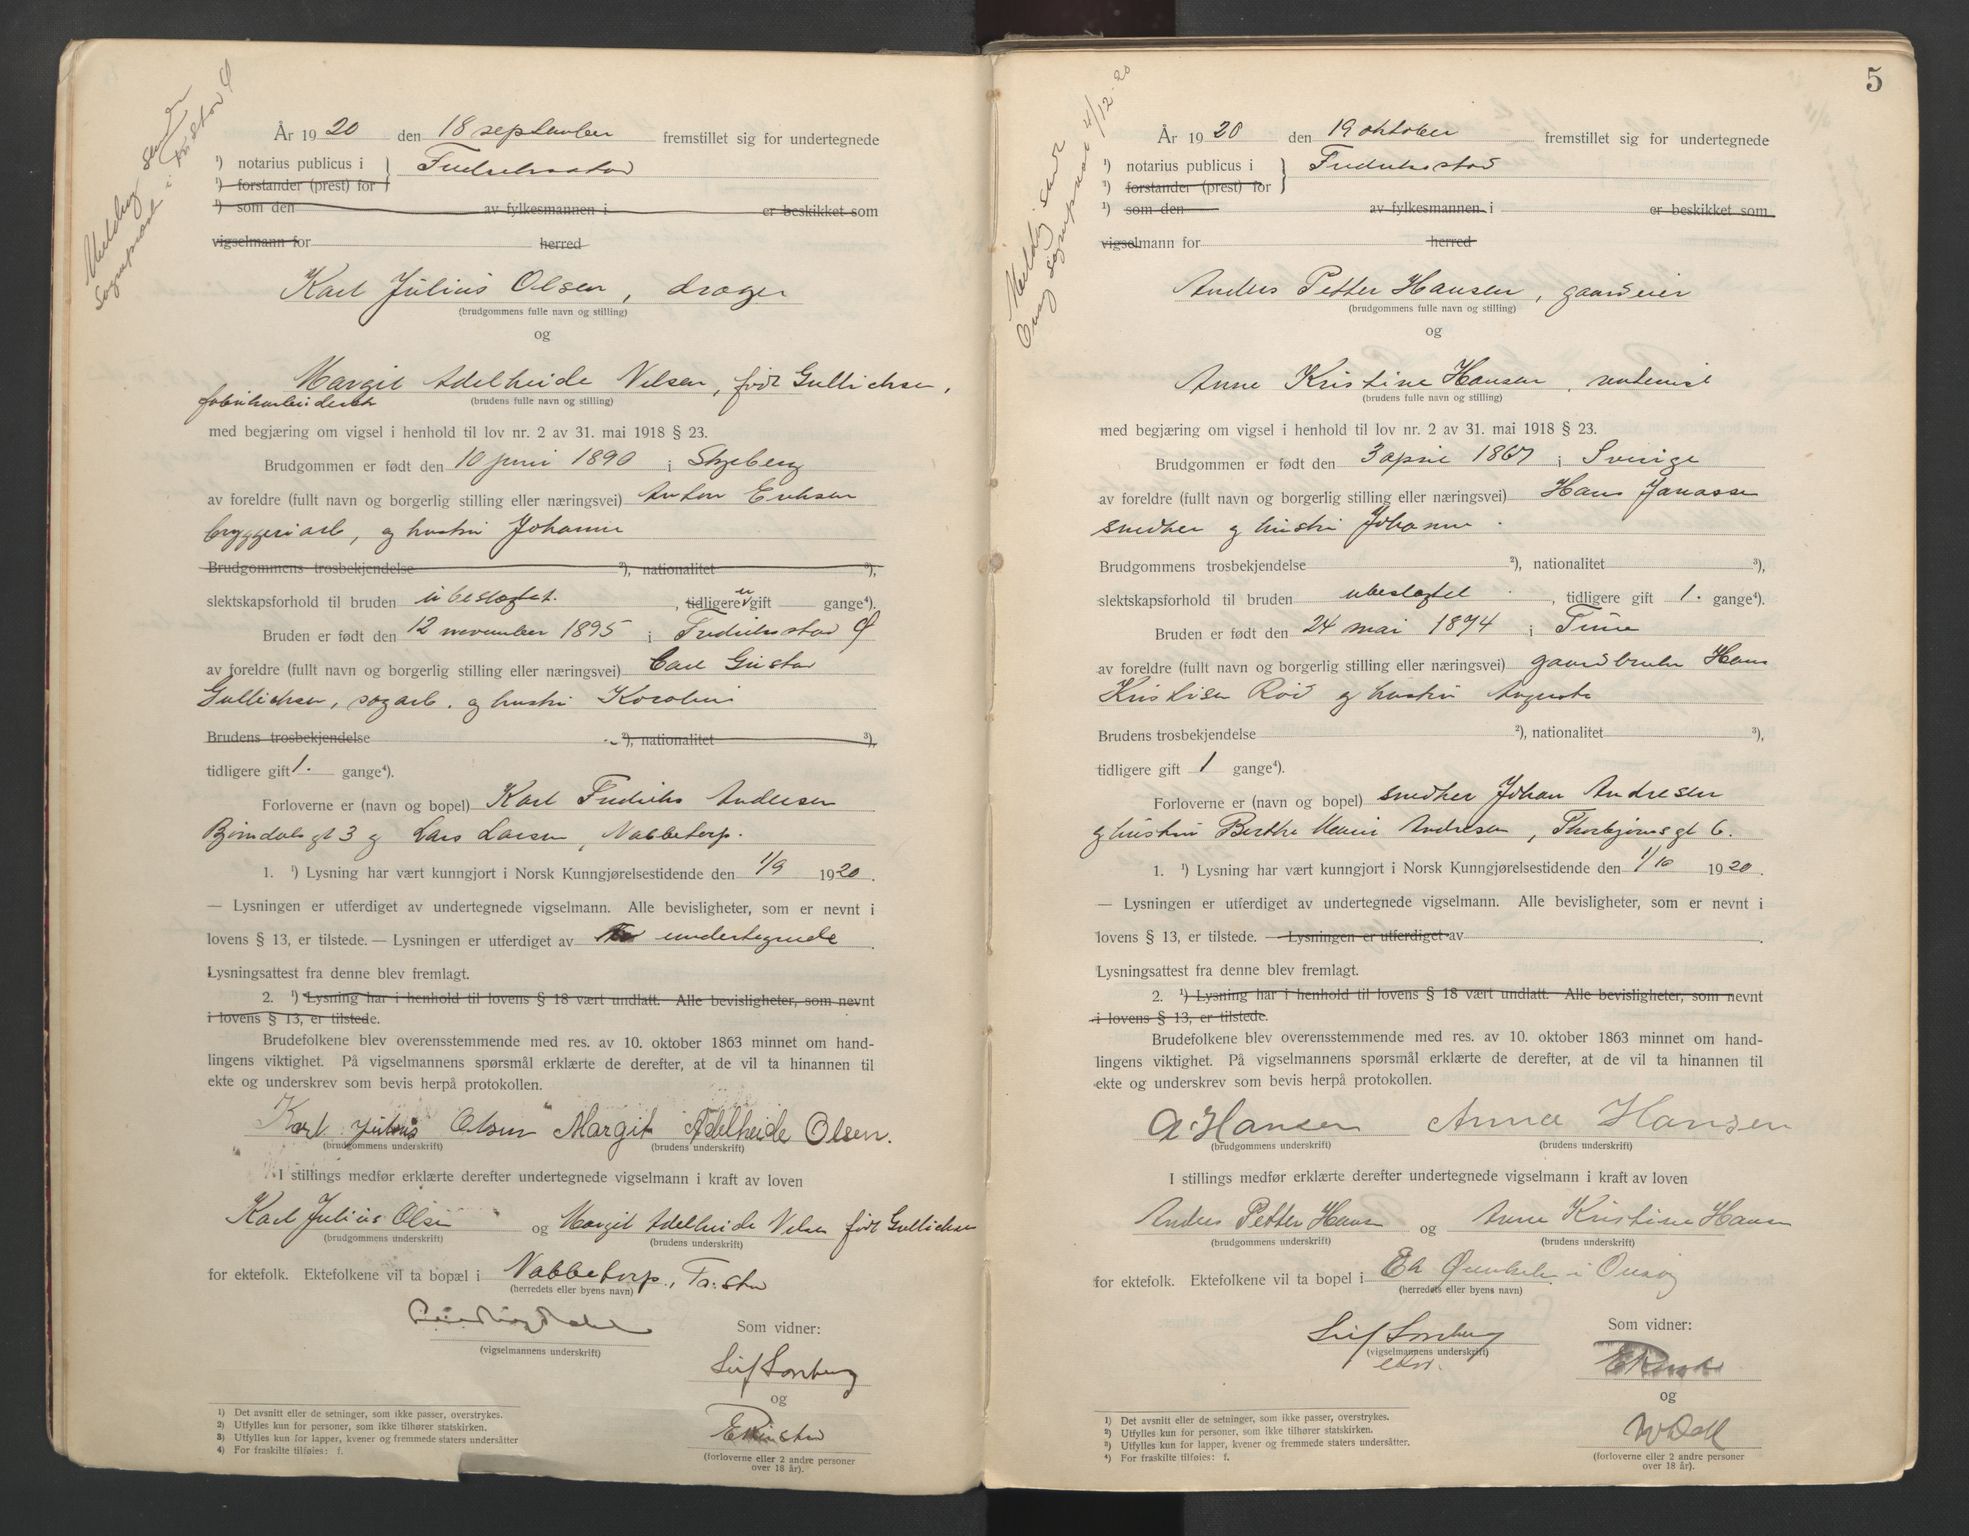 Melding
Sogneprest i
År 1920 den 18 september fremstillet sig for undertegnede
¹) notarius publicus i } Fredriksstad
¹) forstander (prest) for
¹) som den av fylkesmannen i er beskikket som
vigselmann for herred
Karl Julius Olsen, drager
(brudgommens fulle navn og stilling)
og
Margit Adelheide Nilsen, født Gullichsen,
fabrikarbeiderske
(brudens fulle navn og stilling)
med begjæring om vigsel i henhold til lov nr. 2 av 31. mai 1918 § 23.
Brudgommen er født den 10 juni 1890 i Skjeberg
av foreldre (fullt navn og borgerlig stilling eller næringsvei) Anton Eriksen
bryggeriarb, og hustru Johanne
Brudgommens trosbekjendelse ²), nationalitet ³),
slektskapsforhold til bruden ubeslægtet. , tidligere ugift gange⁴).
Bruden er født den 12 november 1895 i Fredriksstad Ø
av foreldre (fullt navn og borgerlig stilling eller næringsvei) Carl Gustav
Gullichsen, sagarb. og hustru Karoline
Brudens trosbekjendelse ²), nationalitet ³),
tidligere gift 1. gange⁴).
Forloverne er (navn og bopel) Karl Fredriks Andersen
Bjørndalsgt 3 og Lars Larsen, Nabbetorp.
1. ¹) Lysning har vært kunngjort i Norsk Kunngjørelsestidende den 1/9 1920.
— Lysningen er utferdiget av undertegnede vigselmann. Alle bevisligheter, som er nevnt i
lovens § 13, er tilstede. — Lysningen er utferdiget av undertegnede
Lysningsattest fra denne blev fremlagt.
2. ¹) Lysning har i henhold til lovens § 18 vært undlatt. Alle bevisligheter, som nevnt
i lovens § 13, er tilstede.
Brudefolkene blev overensstemmende med res. av 10. oktober 1863 minnet om hand-
lingens viktighet. På vigselmannens spørsmål erklærte de derefter, at de vil ta hinannen til
ekte og underskrev som bevis herpå protokollen.
Karl Julius Olsen Margit Adelheide Olsen.
(brudgommens underskrift) (brudens underskrift)
I stillings medfør erklærte derefter undertegnede vigselmann i kraft av loven
Karl Julius Olsen og Margit Adelheide Nilsen født Gullichsen
(brudgommens underskrift) (brudens underskrift)
for ektefolk. Ektefolkene vil ta bopæl i Nabbetorp,
(herredets eller byens navn)
Som vidner:
(vigselmannens underskrift)
Leif Sonberg
og
(forloverne eller 2 andre personer
over 18 år).
¹) Det avsnitt eller de setninger, som ikke passer, overstrykes.
²) Utfylles kun for personer, som ikke tilhører statskirken.
³) Utfylles kun for lapper, kvener og fremmede staters undersåtter
⁴) For fraskilte tilføies: f.
5
Melding sendt
Onsøy sogneprest 4/12-20
År 1920 den 19 oktober fremstillet sig for undertegnede
¹) notarius publicus i } Fredriksstad
¹) forstander (prest) for
¹) som den av fylkesmannen i er beskikket som
vigselmann for herred
Anders Petter Hansen, gaardeier
(brudgommens fulle navn og stilling)
og
Anne Kristine Hansen,
(brudens fulle navn og stilling)
med begjæring om vigsel i henhold til lov nr. 2 av 31. mai 1918 § 23.
Brudgommen er født den 3 april 1867 i Sverige
av foreldre (fullt navn og borgerlig stilling eller næringsvei) Hans Jonasse
snedker og hustru Johanne.
Brudgommens trosbekjendelse ²), nationalitet ³),
slektskapsforhold til bruden ubeslægtet , tidligere gift 1. gange⁴).
Bruden er født den 24 mai 1874 i Tune
av foreldre (fullt navn og borgerlig stilling eller næringsvei) gaardbruker Hans
Kristisen Rød og hustru Auguste
Brudens trosbekjendelse ²), nationalitet ³),
tidligere gift 1 gange⁴).
Forloverne er (navn og bopel) snedker Johan Andresen
og hustru Berthe Marie Andresen, Thorbjørnsgt 6.
1. ¹) Lysning har vært kunngjort i Norsk Kunngjørelsestidende den 1/10 1920.
— Lysningen er utferdiget av undertegnede vigselmann. Alle bevisligheter, som er nevnt i
lovens § 13, er tilstede. — Lysningen er utferdiget av
Lysningsattest fra denne blev fremlagt.
2. ¹) Lysning har i henhold til lovens § 18 vært undlatt. Alle bevisligheter, som nevnt
i lovens § 13, er tilstede.
Brudefolkene blev overensstemmende med res. av 10. oktober 1863 minnet om hand-
lingens viktighet. På vigselmannens spørsmål erklærte de derefter, at de vil ta hinannen til
ekte og underskrev som bevis herpå protokollen.
A. Hansen Anna Hansen
(brudgommens underskrift) (brudens underskrift)
I stillings medfør erklærte derefter undertegnede vigselmann i kraft av loven
Anders Petter Hansen og Anne Kristine Hansen
(brudgommens underskrift) (brudens underskrift)
for ektefolk. Ektefolkene vil ta bopel i i Onsøy
(herredets eller byens navn)
Som vidner:
Leif Sonberg
(vigselmannens underskrift)
og
(forloverne eller 2 andre personer
over 18 år).
¹) Det avsnitt eller de setninger, som ikke passer, overstrykes.
²) Utfylles kun for personer, som ikke tilhører statskirken.
³) Utfylles kun for lapper, kvener og fremmede staters undersåtter.
⁴) For fraskilte tilføies: f.